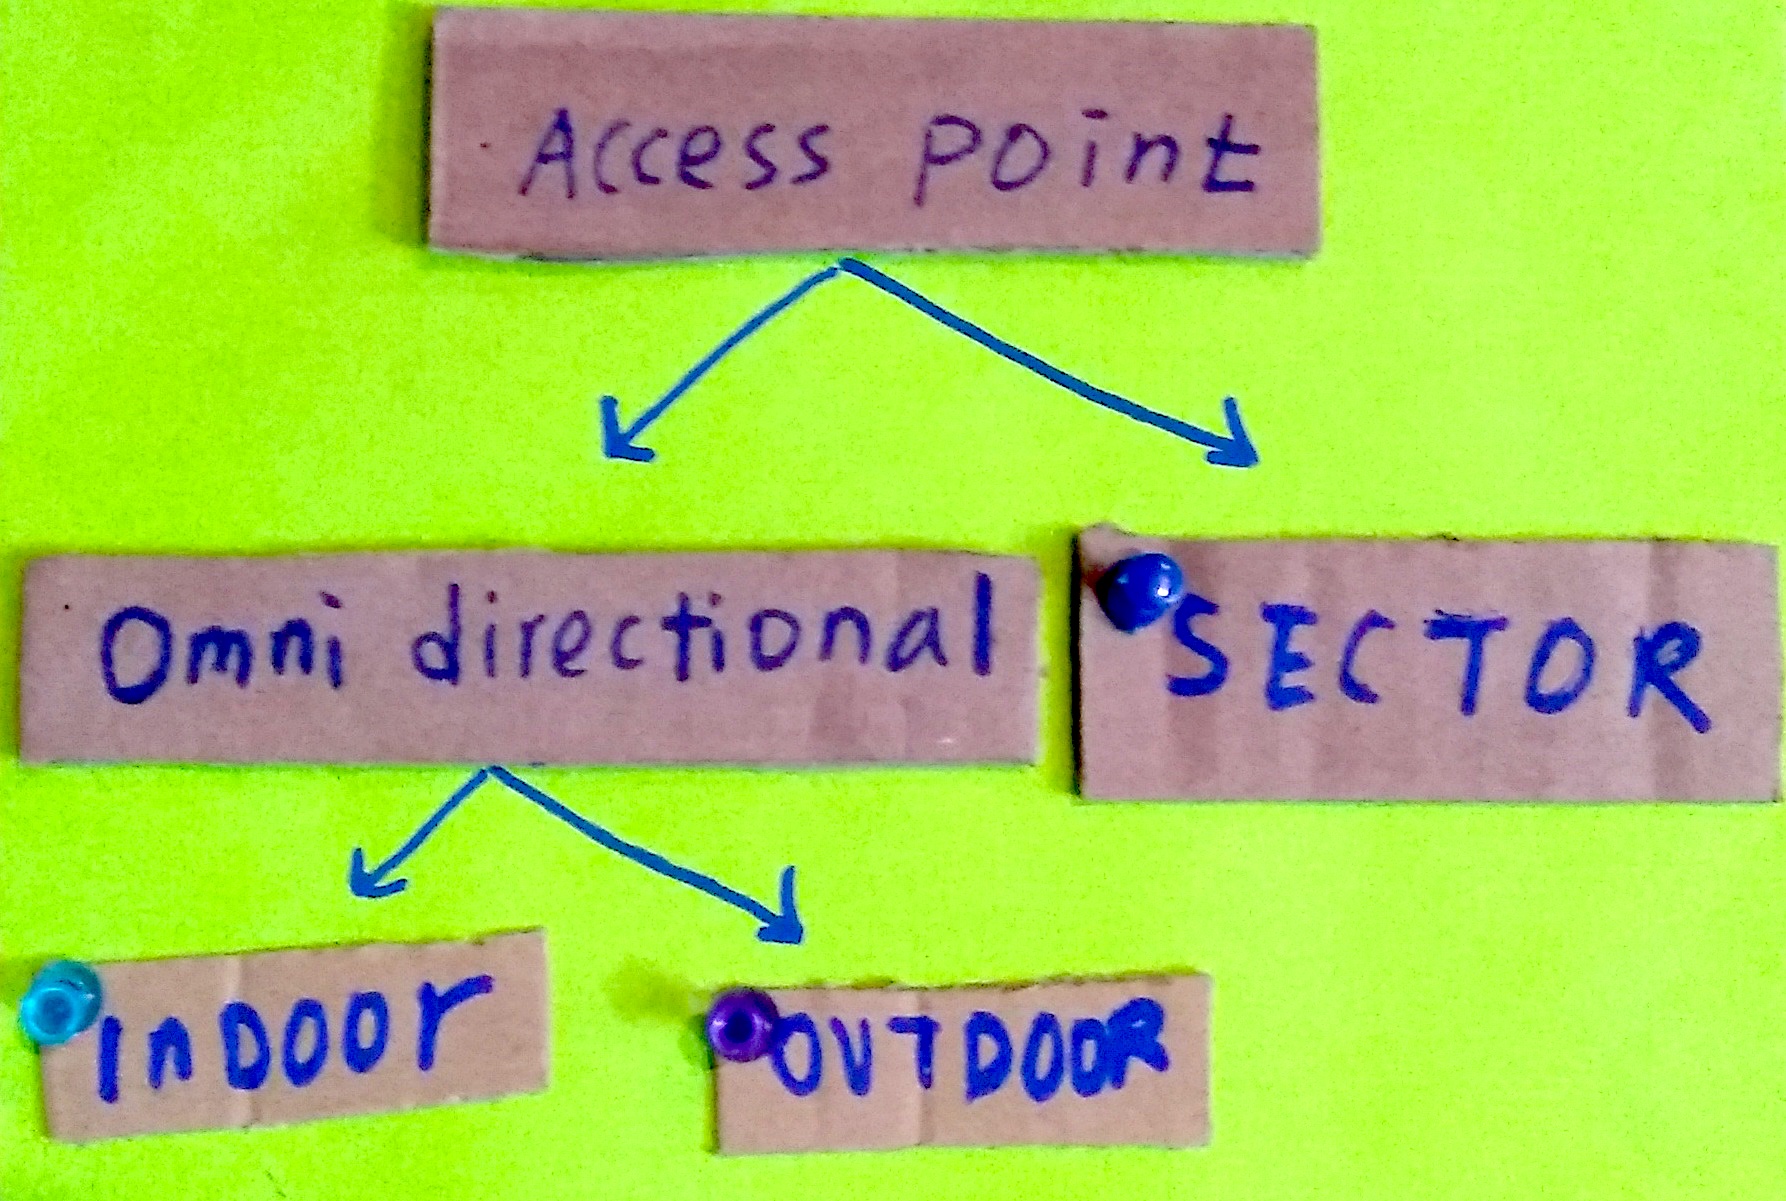 Access point
Omni directional
SECTOR
InDOOr
OUTDOOR